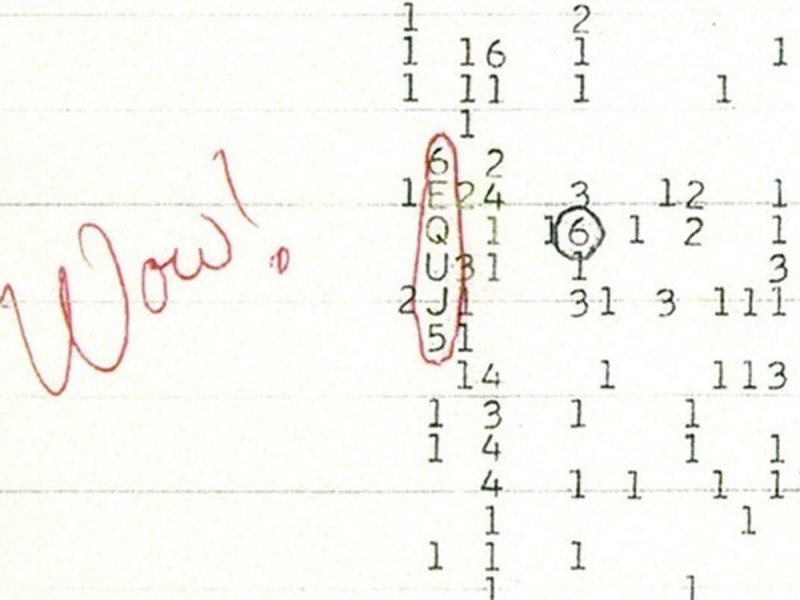 1 2
1 16 1 1
1 11 1 1
1
6 2
1 E 2 4 3 12 1
Wow!
Q 1 1 6 1 2 1
U 3 1 1 3
2 J 1 31 3 111
5 1
14 1 113
1 3 1 1
1 4 1 1
4 1 1 1 1
1 1
1 1 1
1 1